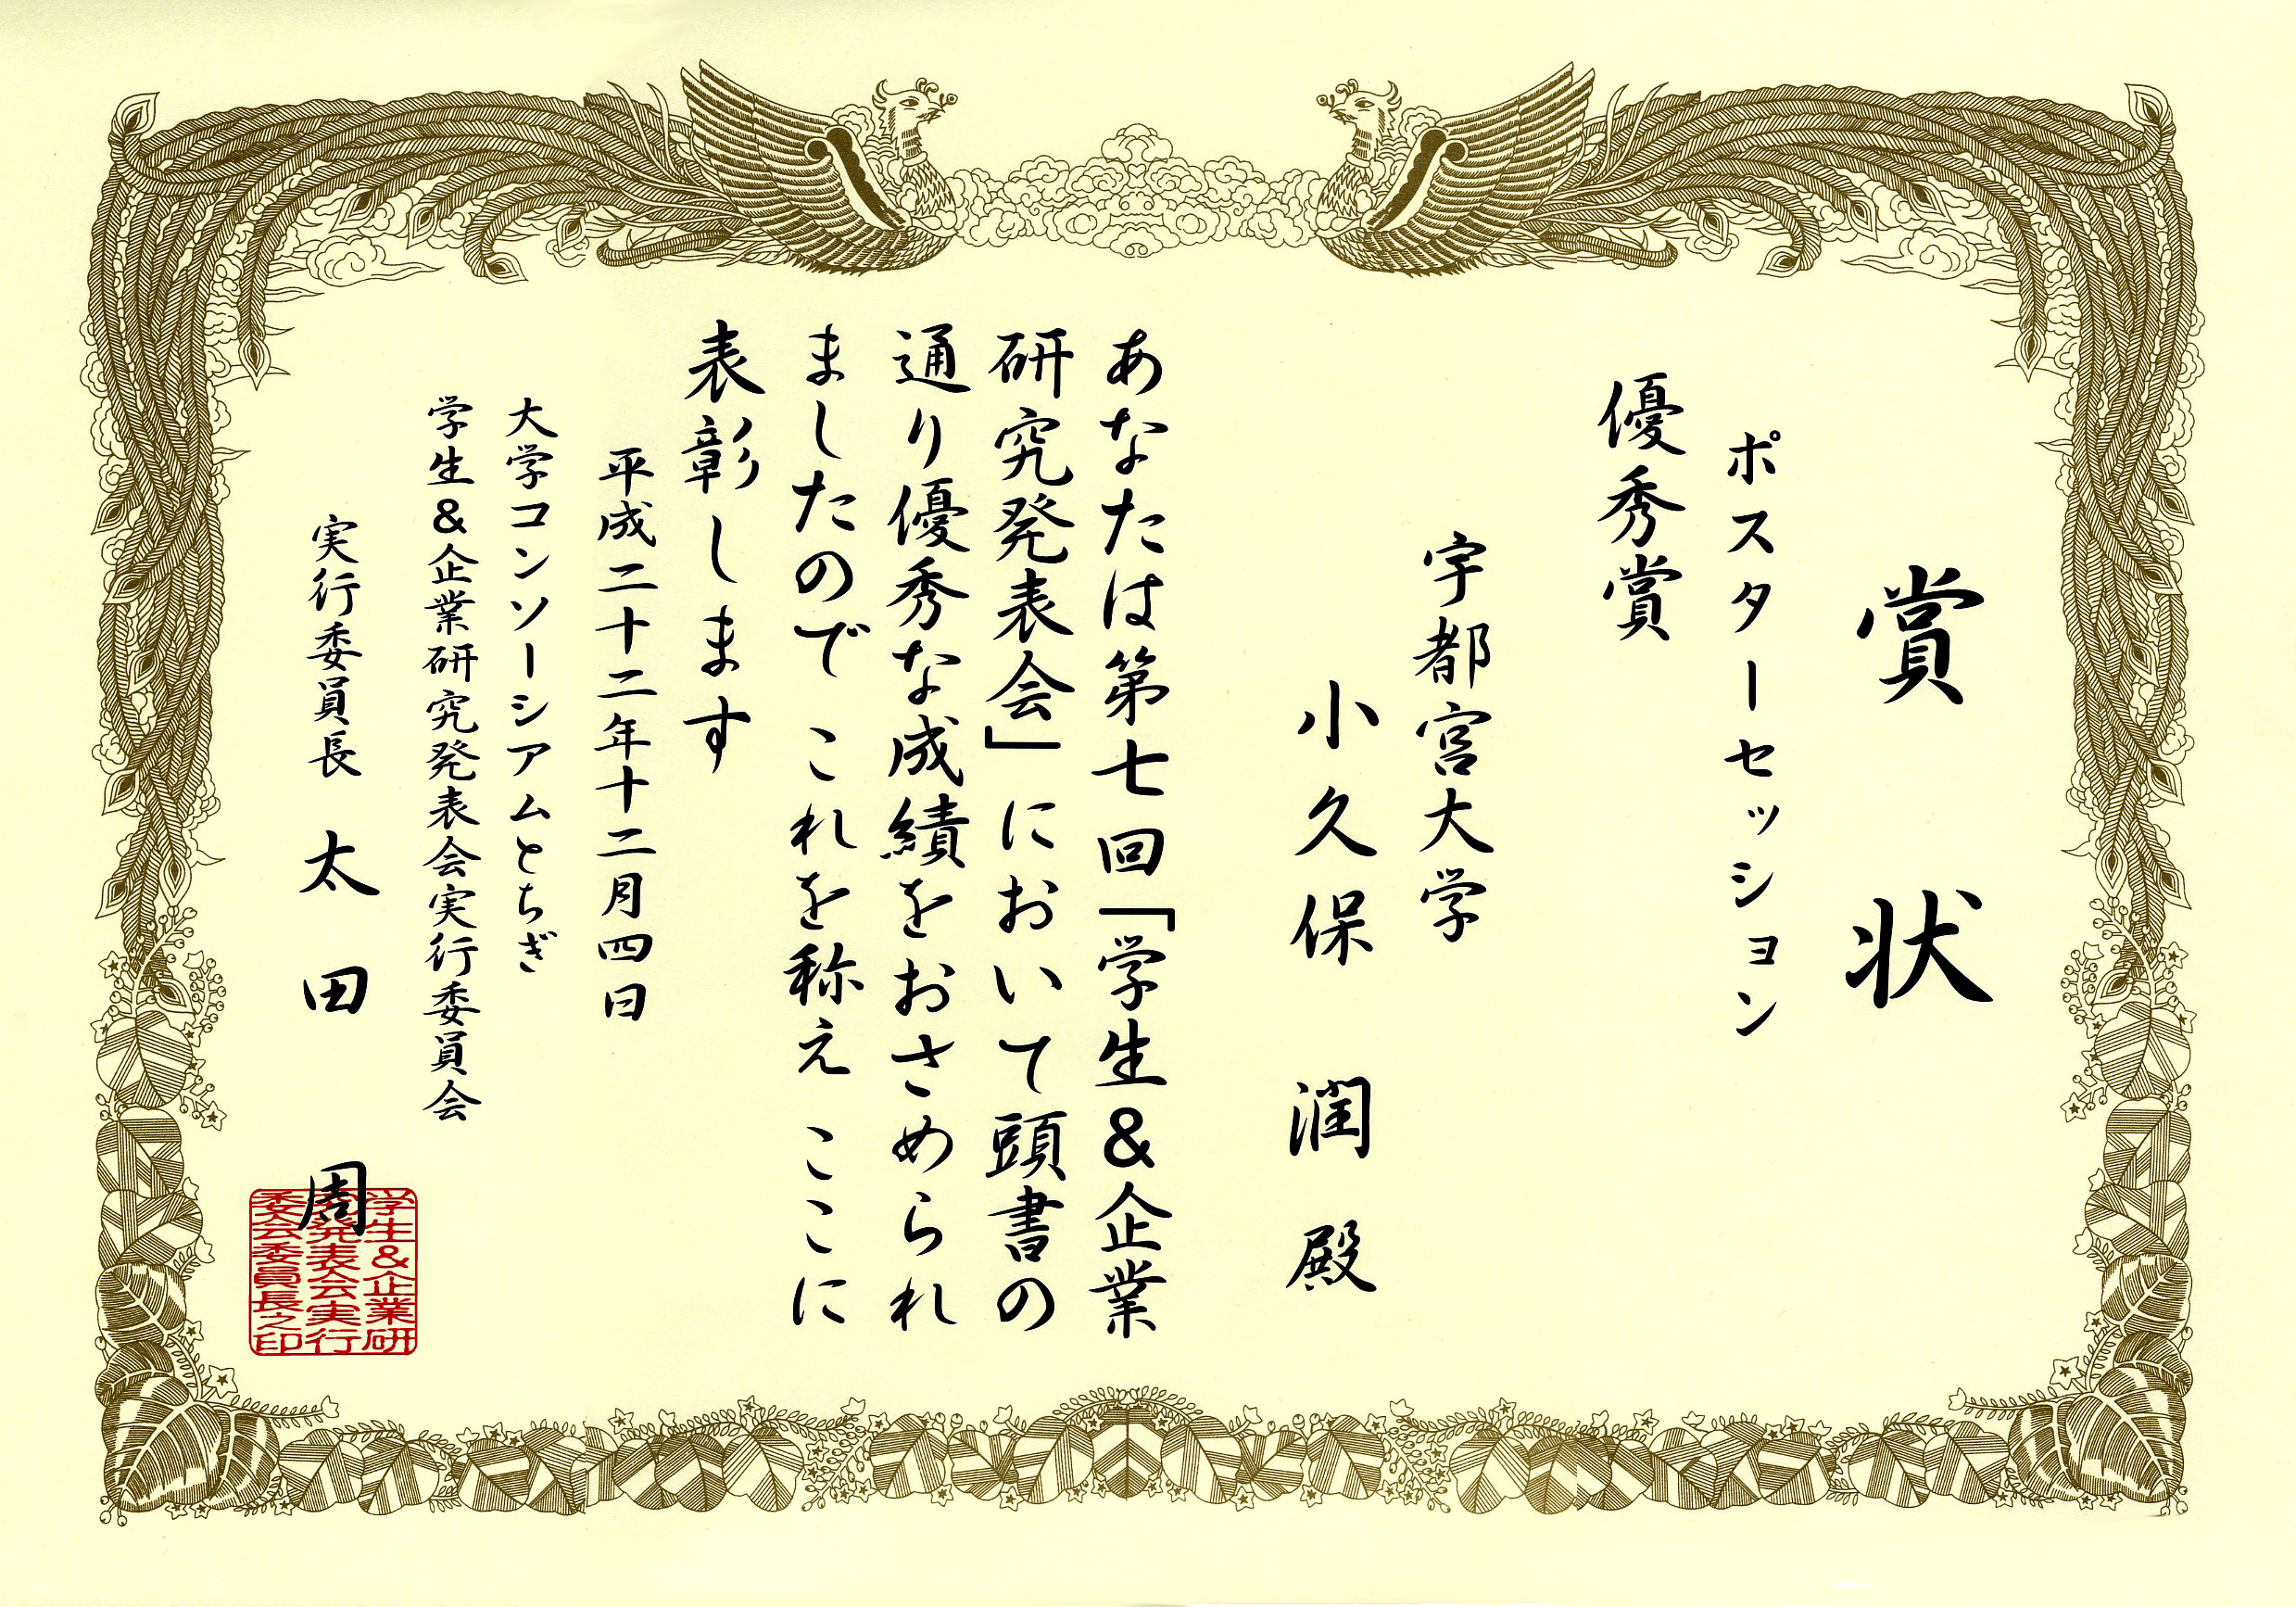 賞状
ポスターセッション
優秀賞
宇都宮大学
小久保 潤 殿
あなたは第七回「学生&企業
研究発表会」において頭書の
通り優秀な成績をおさめられ
ましたので これを称え ここに
表彰します
平成二十二年十二月四日
大学コンソーシアムとちぎ
学生&企業研究発表会実行委員会
実行委員長 太田 周
学生&企業研
究発表会実行
委員会委員長之印